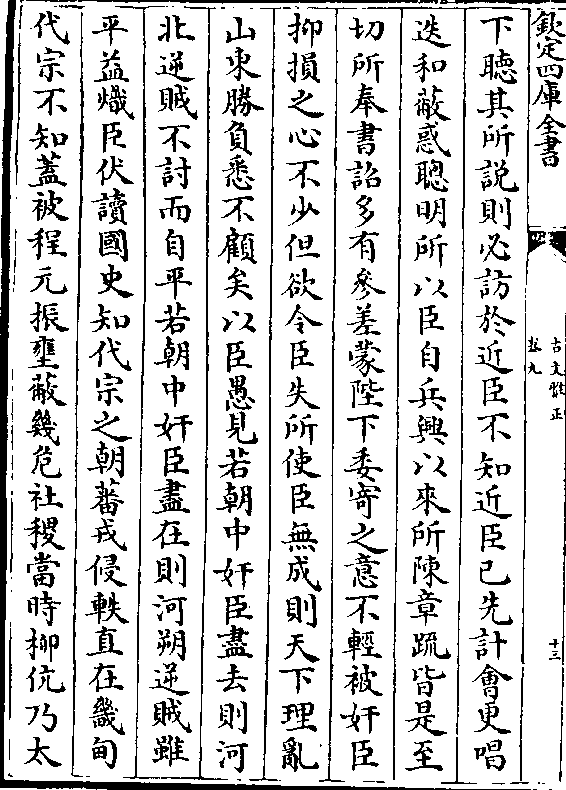 欽定四庫全書
古文雅正
卷九
十三
下聽其所説則必訪於近臣不知近臣已先計會更唱
迭和蔽惑聰明所以臣自兵興以來所陳章疏皆是至
切所奉書詔多有參差蒙陛下委寄之意不輕被奸臣
抑損之心不少但欲令臣失所使臣無成則天下理亂
山東勝負悉不顧矣以臣愚見若朝中奸臣盡去則河
北逆賊不討而自平若朝中奸臣盡在則河朔逆賊雖
平益熾臣伏讀國史知代宗之朝蕃戎侵軼直在畿甸
代宗不知蓋被程元振壅蔽幾危社稷當時柳伉乃太